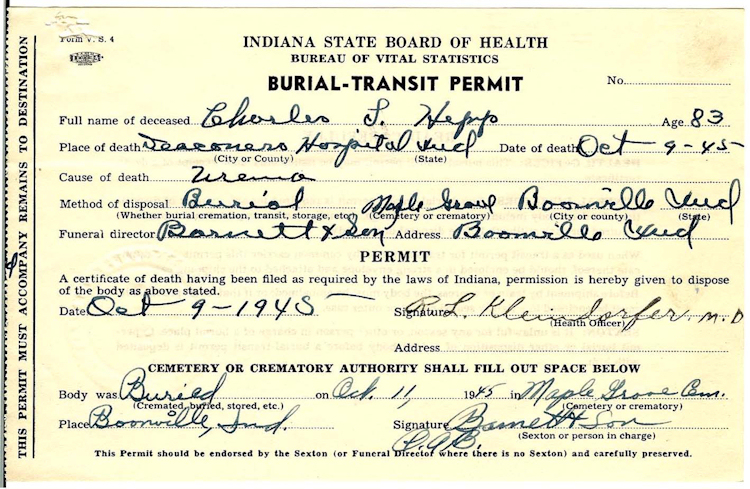 Form V. S. 4
INDIANA STATE BOARD OF HEALTH
BUREAU OF VITAL STATISTICS
BURIAL-TRANSIT PERMIT
No.
Full name of deceased Charles L. Hepp Age 83
Place of death Deaconess Hospital Ind Date of death Oct 9-45
(City or County) (State)
Cause of death Uremia
Method of disposal Burial Maple Grove Boonville Ind
(Whether burial cremation, transit, storage, etc.) (Cemetery or crematory) (City or county) (State)
Funeral director Barnett & Son Address Boonville Ind
PERMIT
A certificate of death having been filed as required by the laws of Indiana, permission is hereby given to dispose
of the body as above stated.
Date Oct 9-1945 Signature R. L. Kleindorfer, M. D
(Health Officer)
Address
CEMETERY OR CREMATORY AUTHORITY SHALL FILL OUT SPACE BELOW
Body was Buried on Oct. 11, 1945 in Maple Grove Cem.
(Cremated, buried, stored, etc.) (Cemetery or crematory)
Place Boonville, Ind. Signature Barnett & Son
(Sexton or person in charge)
C.A.B.
This Permit should be endorsed by the Sexton (or Funeral Director where there is no Sexton) and carefully preserved.
THIS PERMIT MUST ACCOMPANY REMAINS TO DESTINATION